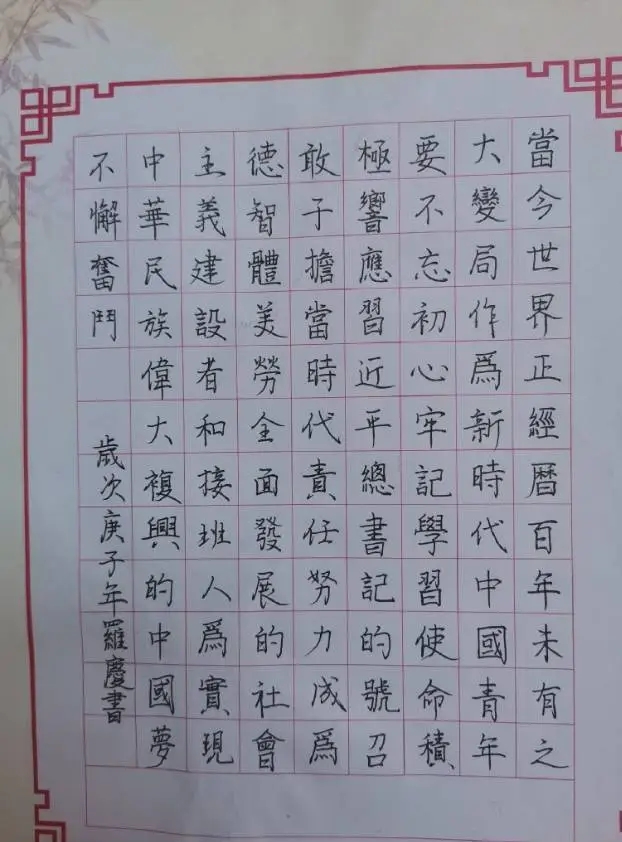 當今世界正經曆百年未有之
大變局作爲新時代中國青年
要不忘初心牢記學習使命積
極響應習近平總書記的號召
敢于擔當時代責任努力成爲
德智體美勞全面發展的社會
主義建設者和接班人爲實現
中華民族偉大複興的中國夢
不懈奮鬥
歲次庚子年羅慶書